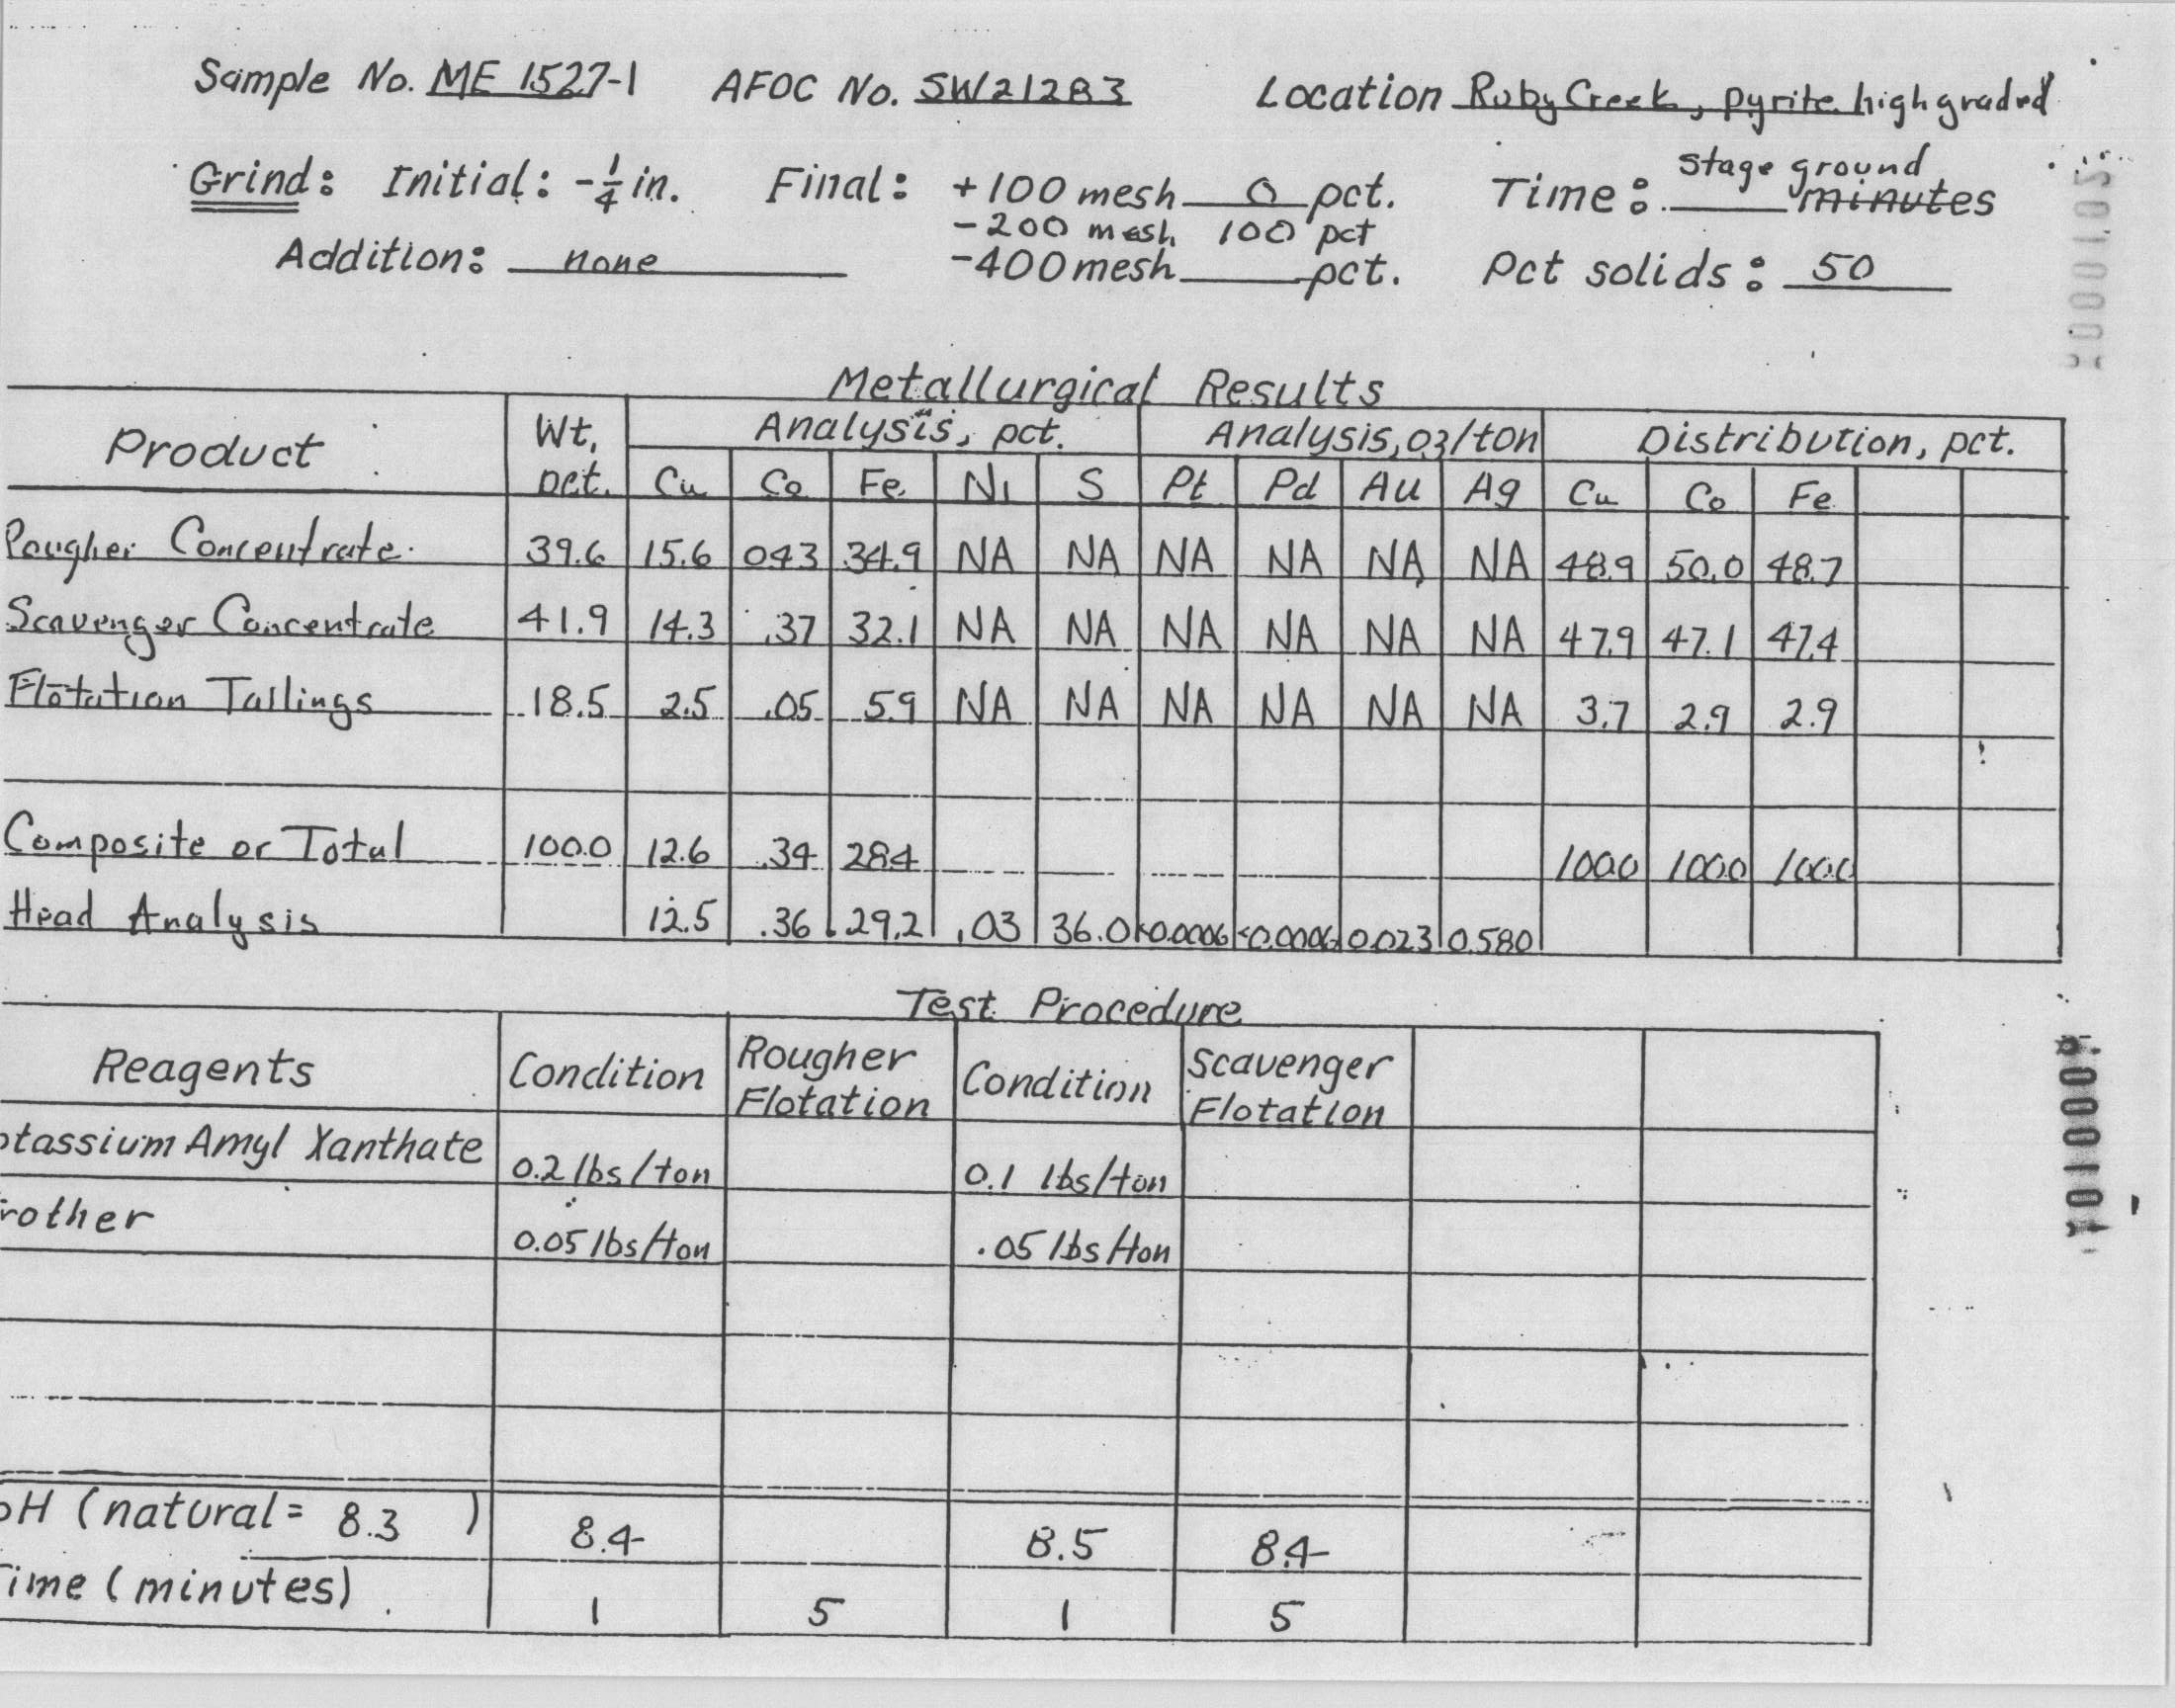 Sample No. ME 1527-1 AFOC No. SW21283 Location Ruby Creek, pyrite high graded
Grind: Initial: -1/4 in. Final: +100 mesh 0 pct. Time: stage ground minutes
-200 mesh 100 pct
Addition: none -400 mesh pct. Pct solids: 50
Metallurgical Results
Product Wt. pct. Analysis, pct. Analysis, oz/ton Distribution, pct.
Cu Co Fe Ni S Pt Pd Au Ag Cu Co Fe
Rougher Concentrate 39.6 15.6 0.43 34.9 NA NA NA NA NA NA 48.9 50.0 48.7
Scavenger Concentrate 41.9 14.3 .37 32.1 NA NA NA NA NA NA 47.9 47.1 47.4
Flotation Tailings 18.5 2.5 .05 5.9 NA NA NA NA NA NA 3.7 2.9 2.9
Composite or Total 100.0 12.6 .34 28.4 100.0 100.0 100.0
Head Analysis 12.5 .36 29.2 .03 36.0 <0.0006 <0.0006 0.023 0.580
Test Procedure
Reagents Condition Rougher Flotation Condition Scavenger Flotation
otassium Amyl Xanthate 0.2 lbs/ton 0.1 lbs/ton
rother 0.05 lbs/ton .05 lbs/ton
pH (natural = 8.3 ) 8.4 8.5 8.4
Time (minutes) 1 5 1 5